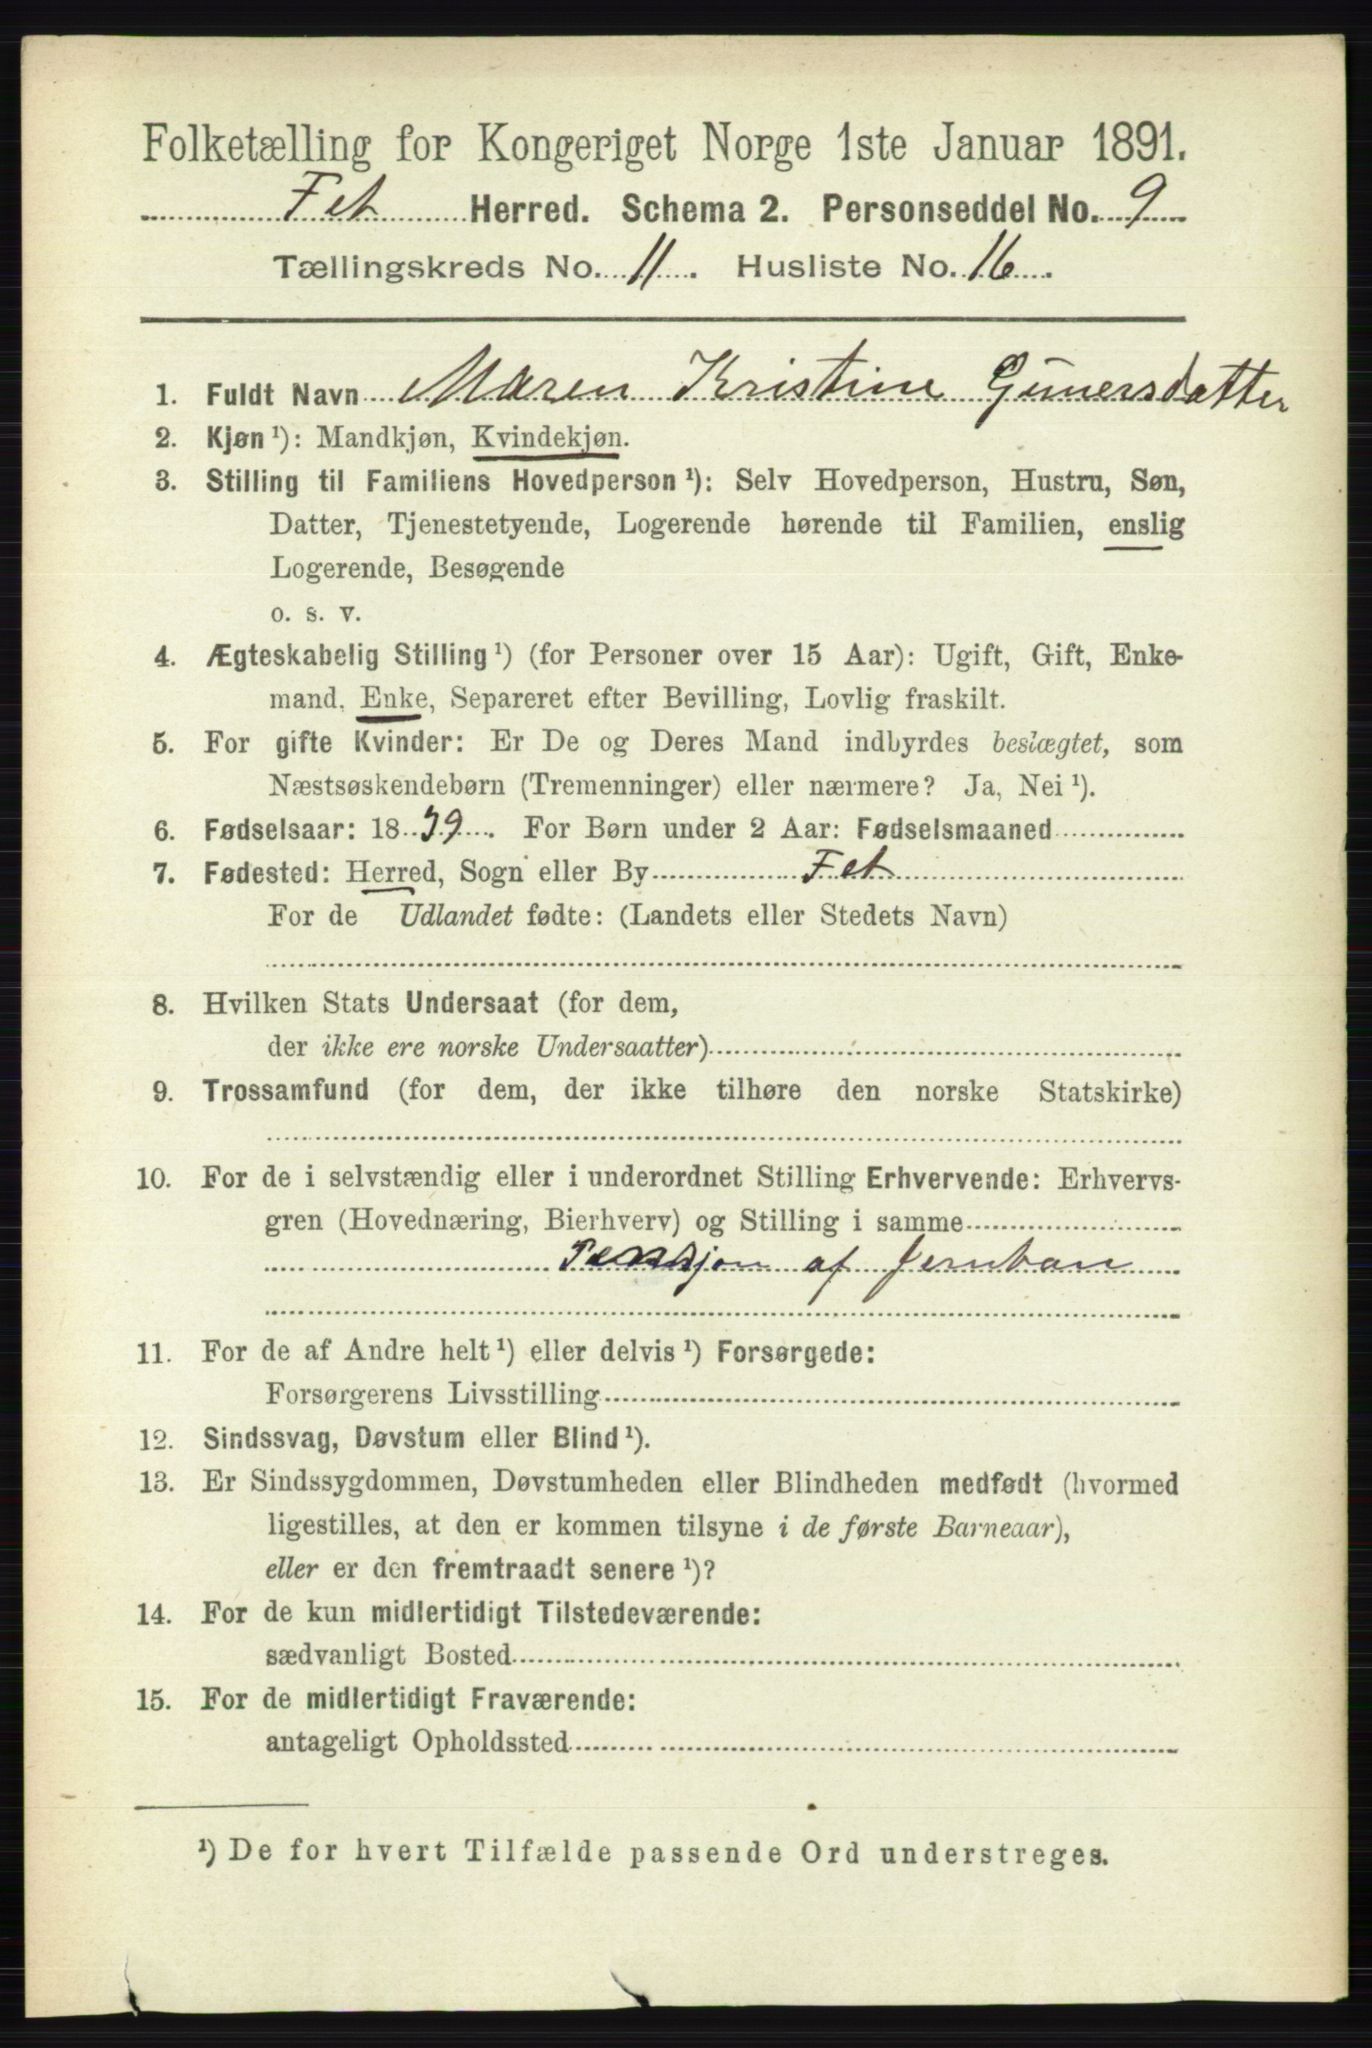 Folketælling for Kongeriget Norge 1ste Januar 1891.
Fet Herred. Schema 2. Personseddel No. 9
Tællingskreds No. 11. Husliste No. 16.
1. Fuldt Navn Maren Kristine Gunersdatter
2. Kjøn ¹): Mandkjøn, Kvindekjøn.
3. Stilling til Familiens Hovedperson ¹): Selv Hovedperson, Hustru, Søn,
Datter, Tjenestetyende, Logerende hørende til Familien, enslig
Logerende, Besøgende
o. s. v.
4. Ægteskabelig Stilling ¹) (for Personer over 15 Aar): Ugift, Gift, Enke-
mand, Enke, Separeret efter Bevilling, Lovlig fraskilt.
5. For gifte Kvinder: Er De og Deres Mand indbyrdes beslægtet, som
Næstsøskendebørn (Tremenninger) eller nærmere? Ja, Nei ¹).
6. Fødselsaar: 1839. For Børn under 2 Aar: Fødselsmaaned
7. Fødested: Herred, Sogn eller By Fet
For de Udlandet fødte: (Landets eller Stedets Navn)
8. Hvilken Stats Undersaat (for dem,
der ikke ere norske Undersaatter)
9. Trossamfund (for dem, der ikke tilhøre den norske Statskirke)
10. For de i selvstændig eller i underordnet Stilling Erhvervende: Erhvervs-
gren (Hovednæring, Bierhverv) og Stilling i samme
Pensjon af Jernban
11. For de af Andre helt ¹) eller delvis ¹) Forsørgede:
Forsørgerens Livsstilling
12. Sindssvag, Døvstum eller Blind ¹).
13. Er Sindssygdommen, Døvstumheden eller Blindheden medfødt (hvormed
ligestilles, at den er kommen tilsyne i de første Barneaar),
eller er den fremtraadt senere ¹)?
14. For de kun midlertidigt Tilstedeværende:
sædvanligt Bosted
15. For de midlertidigt Fraværende:
antageligt Opholdssted
¹) De for hvert Tilfælde passende Ord understreges.